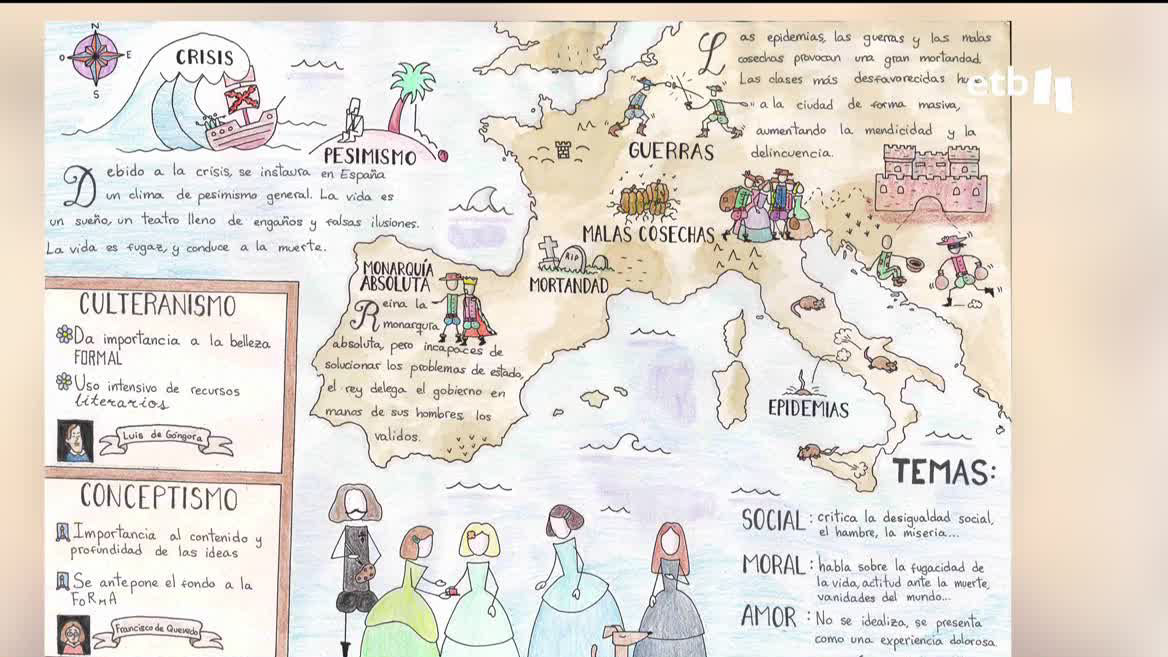 N
E
S
O
CRISIS
PESIMISMO
Debido a la crisis, se instaura en España
un clima de pesimismo general. La vida es
un sueño, un teatro lleno de engaños y falsas ilusiones.
La vida es fugaz, y conduce a la muerte.
Las epidemias, las guerras y las malas
cosechas provocan una gran mortandad.
Las clases más desfavorecidas
a la ciudad de forma masiva,
aumentando la mendicidad y la
delincuencia.
etb 1
GUERRAS
MALAS COSECHAS
RIP
MORTANDAD
MONARQUÍA
ABSOLUTA
Reina la
monarqura
absoluta, pero incapaces de
solucionar los problemas de estado,
el rey delega el gobierno en
manos de sus hombres, los
validos.
EPIDEMIAS
CULTERANISMO
Da importancia a la belleza
FORMAL
Uso intensivo de recursos
literarios
Luis de Góngora
CONCEPTISMO
Importancia al contenido y
profundidad de las ideas
Se antepone el fondo a la
FORMA
Francisco de Quevedo
TEMAS:
SOCIAL: critica la desigualdad social,
el hambre, la miseria...
MORAL: habla sobre la fugacidad de
la vida, actitud ante la muerte,
vanidades del mundo...
AMOR: No se idealiza, se presenta
como una experiencia dolorosa